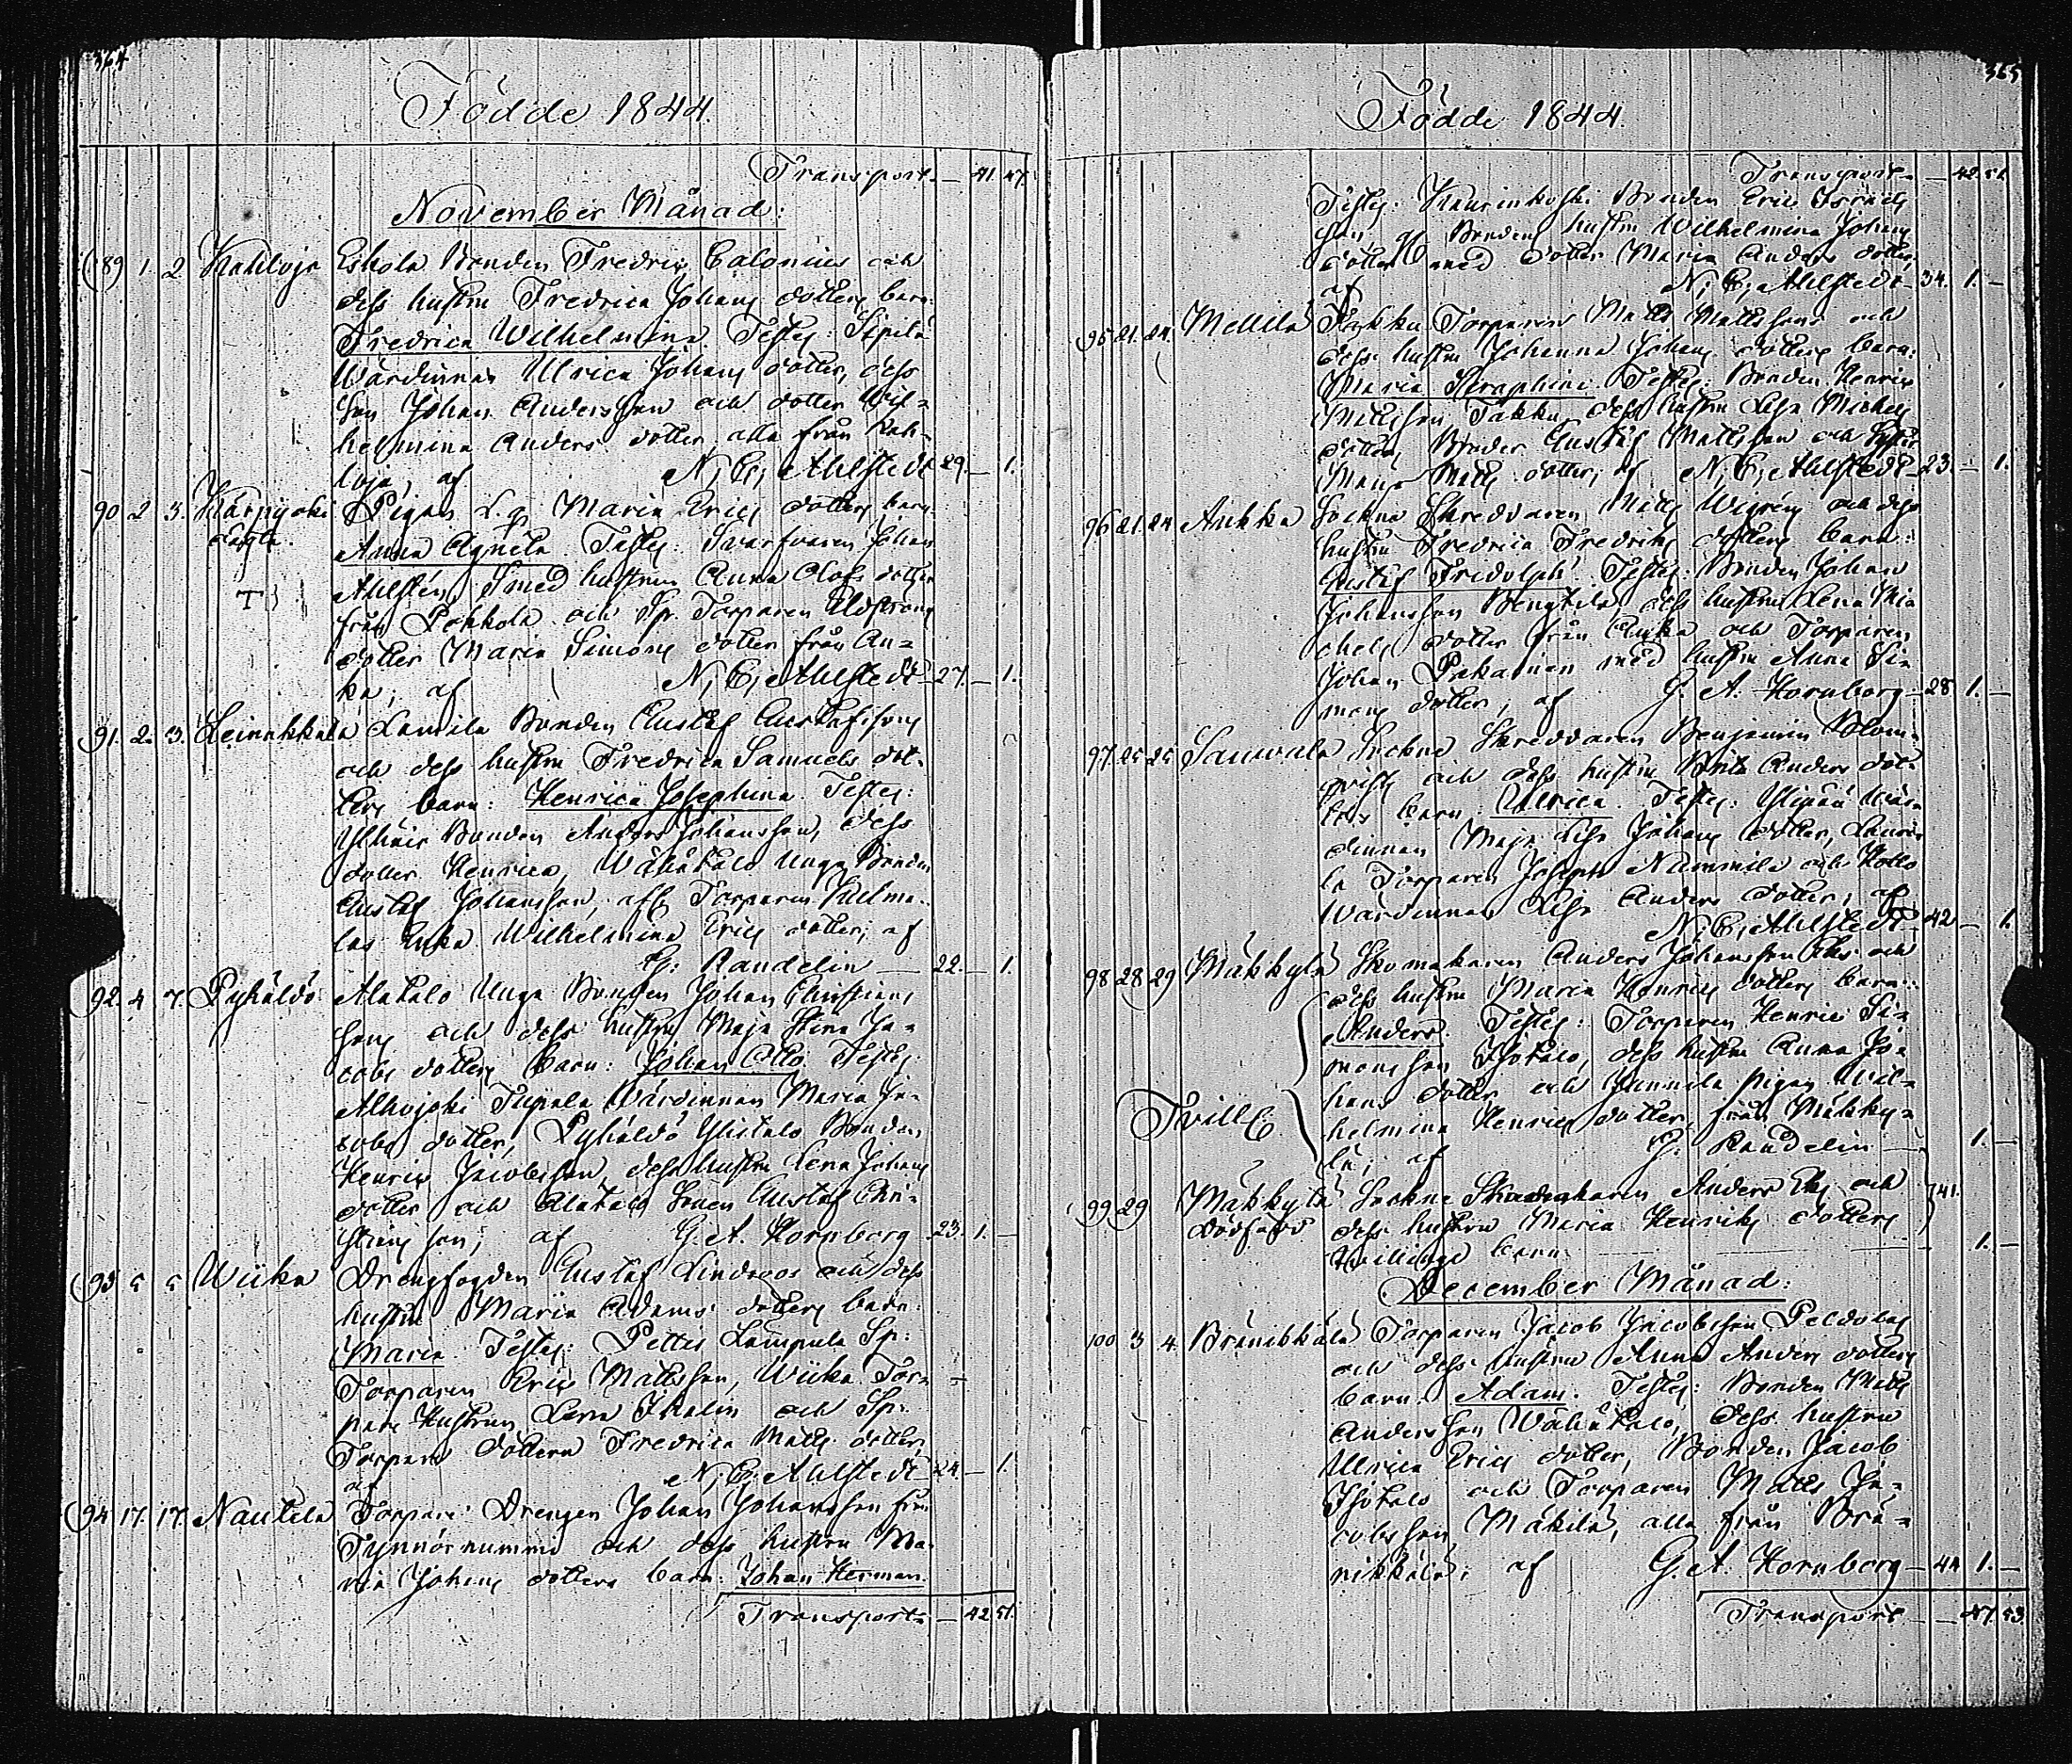 364
Födde 1844.
Transport. — 41. 47.
November Månad:
89 1. 2 Kahloja Eskola Bonden Fredric Calonius och
dess hustru Fredrica Johans dotters barn:
Fredrica Wilhelmina. Testes: Sipilä
Wärdinnan Ulrica Johans dotter, dess
son Johan Andersson och dotter Wil=
helmina Anders dotter alla från Kah=
loja, af N; E; Ahlstedt 29. — 1.
90 2 3. Kärpijoki Pigan L. q. Maria Erics dotters barn
Anna Agneta. Testes: Svarfvaren Johan
Ahlstén, Smed hustrun Anna Olofs dotter
från Pokkola och Sp. Torparen
dotter Maria Simons dotter från An=
ka; af N; E; Ahlstedt — 27. — 1.
91. 2. 3. Leinakkala Laurila Bonden Gustaf Gustafssons
och dess hustru Fredrica Samuels dot=
ters barn: Henrica Josephina. Testes:
Bonden Anders Johansson, dess
dotter Henrica, Wähätalo unga Bonden
Gustaf Johansson, afl. Torparen
Enka Wilhelmina Erics dotter; af
G: Randelin — 22. — 1.
92. 4 7. Pyhäldö Alatalo Unga Bonden Johan Christians
sons och dess hustru Maja Stina Ja=
cobs dotters barn: Johan Otto. Testes:
Alhojoki Wärdinnan Maria Ja=
cobs dotter, Pyhäldö Ylistalo Bonden
Henric Jacobsson, dess hustru Lena Johans
dotter och Alatalo Sonen Gustaf Chri=
stians son; af G. A. Hornborg. 23. 1. —
93 5 5 Wiika Drengfogden Gustaf Lindroos och dess
hustru Maria Adams dotters barn:
Maria. Testes: Pettis Lampula Sp:
Torparen Eric Mattsson, Wiika Tor=
pare Hustrun Lena Ikalin och Sp:
Torpare dottern Fredrica Matts dotter,
af N; E; Ahlstedt — 24. — 1.
94 17. 17. Nautela Torpare Drengen Johan Johansson från
Tynnörnummi och dess hustru Ma=
ria Johans dotters barn: Johan Herman.
Transport — 42. 51.
365
Födde 1844.
Transport — 42. 51.
Testes: Kaurinkoski Bonden Eric Israels
son, Bondens hustru Wilhelmina Johans
dotter med dotter Maria Anders dotter,
af N; E; Ahlstedt — 34. 1. —
95 21. 24. Mellilä Takku Torparen Matts Mattssons och
dess hustru Johanna Johans dotters barn:
Maria Seraphina. Testes: Bonden Henric
Mattsson Takku, dess hustru Lisa Michels
dotter, Bonden Gustaf Mattsson och Syster
Maria Matts dotter; af N; E; Ahlstedt — 23. — 1.
96 21. 24. Ankka Sockne Skreddaren Matts Wigrén och dess
hustru Fredrica Fredriks dotters barn:
Gustaf Fridolph. Testes: Bonden Johan
Johansson Bengtilä, dess hustru Lena Mi=
chels dotter från Anka och Torparen
Johan Pekainen med hustru Anna Si=
mons dotter, af G. A. Hornborg — 28 1. —
97. 25 25 Sauvala Sockne Skreddaren Benjamin Blom=
qvists och dess hustru Brita Anders dot=
ters barn: Ulrica. Testes: Ylipää Wär=
dinnan Maja Lisa Johans dotter, Lauri=
la Torparen Joseph Nummila och Hollo
Wärdinnan Lisa Anders dotter; af
N; E; Ahlstedt — 42 — 1.
98 28 29 Mäkkylä Skomakaren Anders Johansson Eks och
dess hustru Maria Henrics dotters barn:
Anders. Testes: Torparen Henric Si=
monsson Isotalo, dess hustru Anna Jo=
hans dotter och Junnila pigan Wil=
helmina Henrics dotter från Mäkky=
lä; af G: Randelin — 1. —
Tvill
99 29 Mäkkylä Sockne Skomakaren Anders Eks och
dödfödd dess hustru Maria Henriks dotters
tvillinge barn. — 41. 1. —
December Månad:
100 3 4. Bränikkälä Torparen Jacob Jacobsson Peldolas
och dess hustru Anna Anders dotters
barn: Adam. Testes: Bonden Matts
Andersson Wähätalo, dess hustru
Ulrica Erics dotter, Bonden Jacob
Isotalo och Torparen Matts Ja=
cobsson Mäkilä, alla från Brä=
nikkälä; af G. A. Hornborg — 44 1. —
Transport — 47. 53.